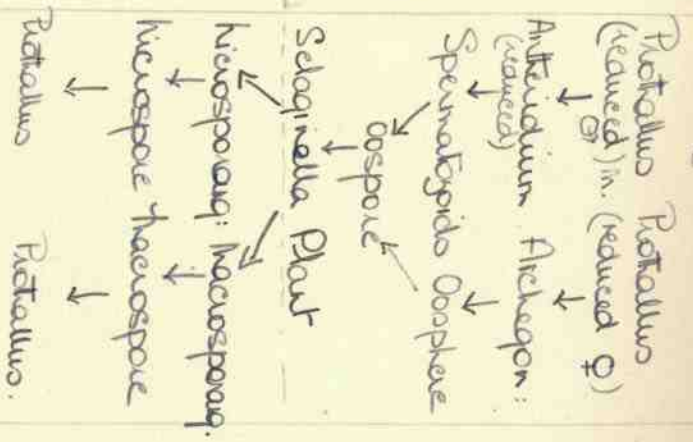 Prothallus Prothallus
(reduced) in. (reduced ♀)
♂
Antheridium Archegon:
(reduced)
Spermatozoids Oosphere
Oospore
Selaginella Plant
Microsporang: Macrosporang.
Microspore Macrospore
Prothallus Prothallus.